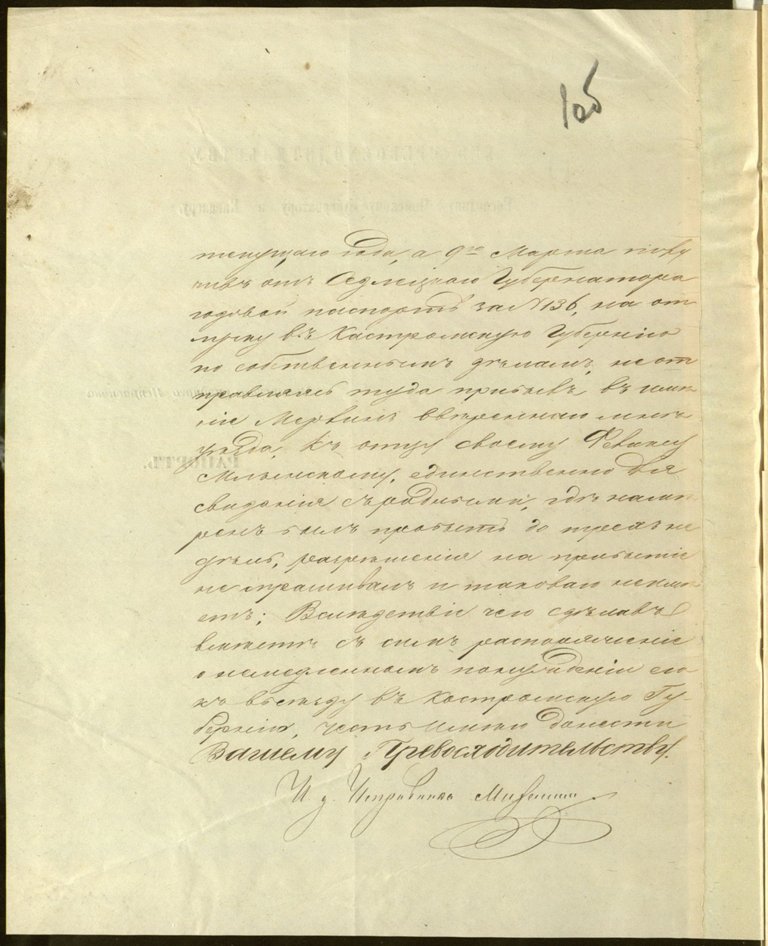 10б
текущаго года, а 9го Марта полу
чивъ отъ Седлецкаго Губернатора
годовой паспортъ за № 136, на от
лучку въ Костромскую Губернію
по собственнымъ дѣламъ, не от
правляясь туда прибылъ въ имѣ
ніе Мервинъ ввѣреннаго мнѣ
уѣзда, къ отцу своему Феликсу
единственно для
свиданія съ родными, гдѣ намѣ
ренъ былъ пробыть до трехъ не
дѣль, разрѣшенія на прибытіе
не спрашивалъ и таковаго неимѣ
етъ; Вслѣдствіе чего сдѣлавъ
вмѣстѣ съ симъ распоряженіе
о немедленномъ понужденіи его
къ выѣзду въ Костромскую Гу-
бернію, честь имѣю донести
Вашему Превосходительству.
И. д. Исправника